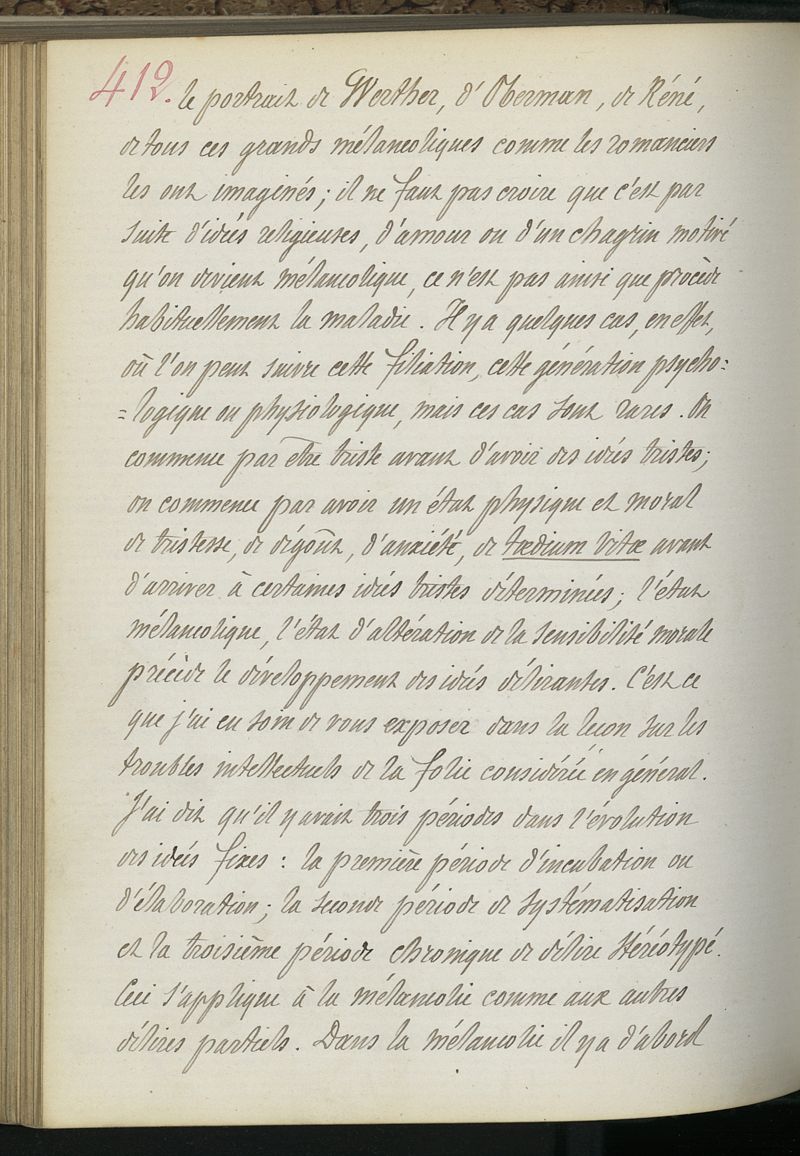 412. le portrait de Werther, d'Oberman, de Réné,
de tous ces grands mélancoliques comme les romanciers
les ont imaginés ; il ne faut pas croire que c'est par
suite d'idées religieuses, d'amour ou d'un chagrin motivé
qu'on devient mélancolique, ce n'est pas ainsi que procède
habituellement la maladie. Il y a quelques cas, en effet,
où l'on peut suivre cette filiation, cette génération psycho=
=logique ou physiologique, mais ces cas sont rares. On
commence par être triste avant d'avoir des idées tristes ;
on commence par avoir un état physique et moral
de tristesse, de dégoût, d'anxiété, de tœdium vitœ avant
d'arriver à certaines idées tristes déterminées ; l'état
mélancolique, l'état d'altération de la sensibilité morale
précède le développement des idées délirantes. C'est ce
que j'ai eu soin de vous exposer dans la leçon sur les
troubles intellectuels de la folie considérée en général.
J'ai dit qu'il y avait trois périodes dans l'évolution
des idées fixes : la première période d'incubation ou
d'élaboration ; la seconde période de systématisation
et la troisième période chronique de délire stéréotypé.
Ceci s'applique à la mélancolie comme aux autres
délires partiels. Dans la mélancolie il y a d'abord